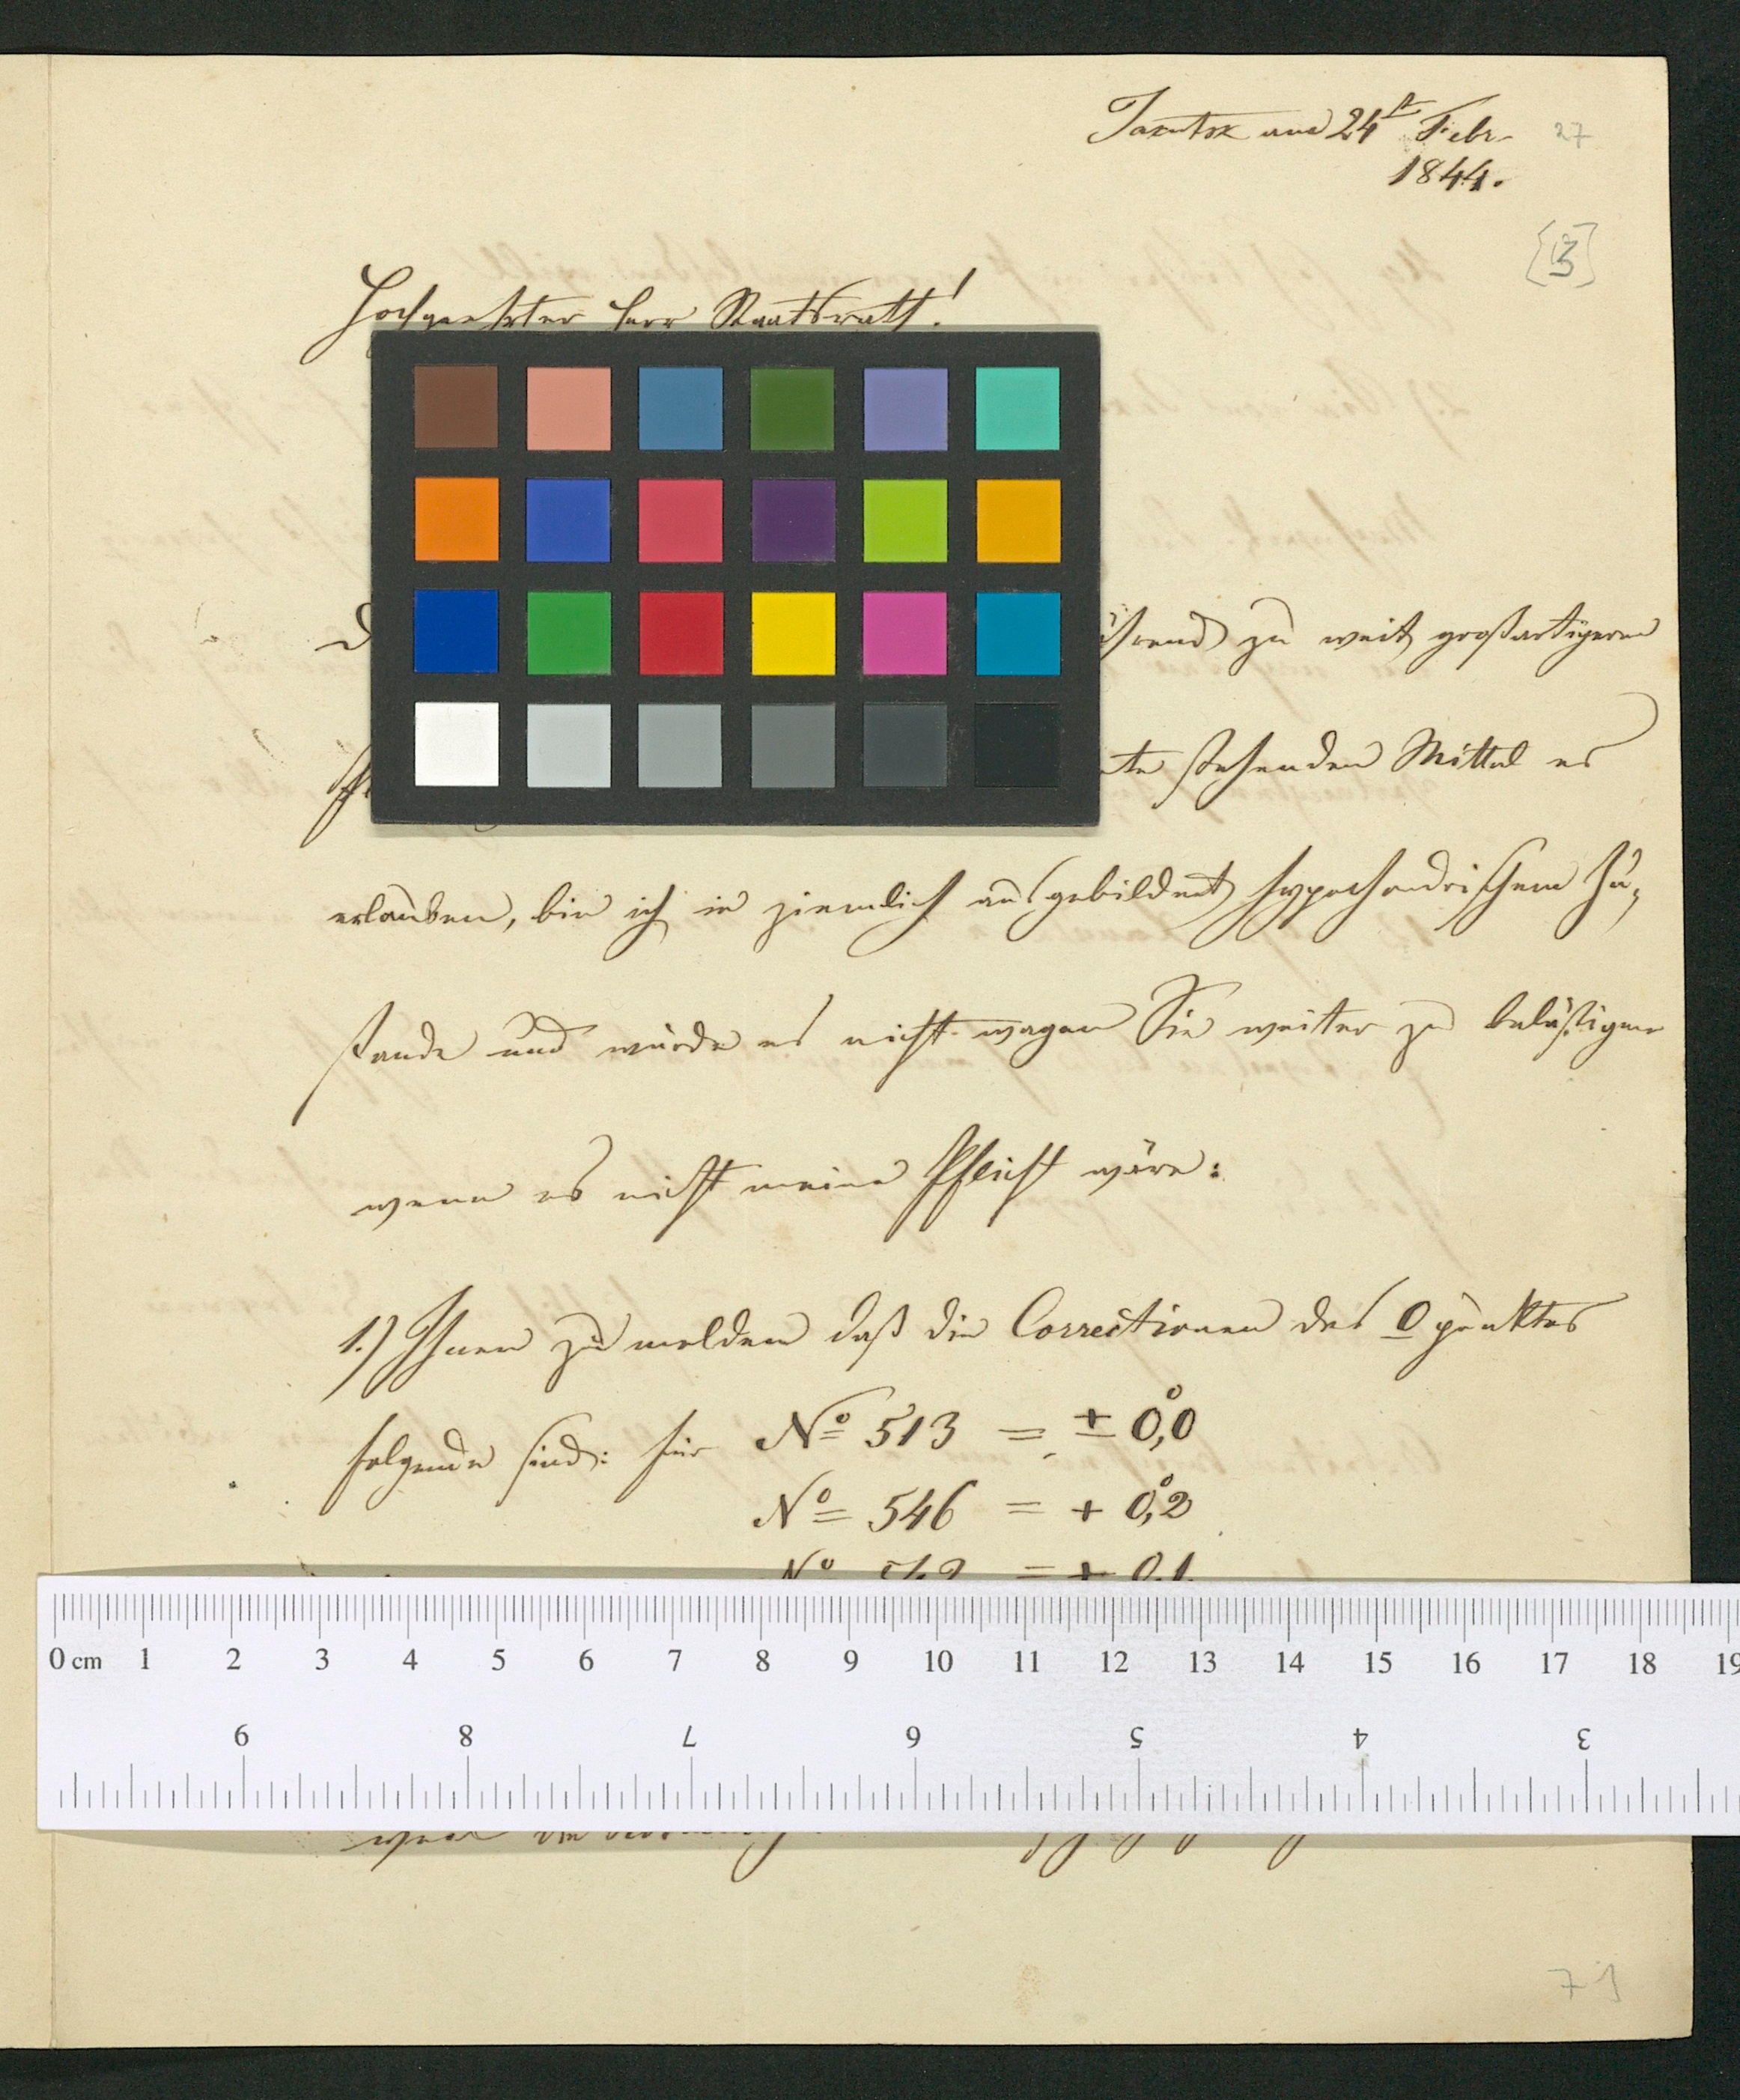 Jakutsk am 24st Febr. 27
1844.
[3]
Hochgeehrter Herr Staatsrath!
zu weit großartigeren
stehenden Mittel es
erlauben, bin ich in ziemlich ausgebildet hypochondrischem Zu-
stande und würde es nicht wagen Sie weiter zu belästigen
wenn es nicht meine Pflicht wäre:
1.) Ihnen zu melden daß die Correctionen des 0 punktes
folgende sind: für No 513 = ± 0,°0
No 546 = + 0,°2
No = + 0,1
0 cm 1 2 3 4 5 6 7 8 9 10 11 12 13 14 15 16 17 18 19
9 8 7 6 5 4 3
71